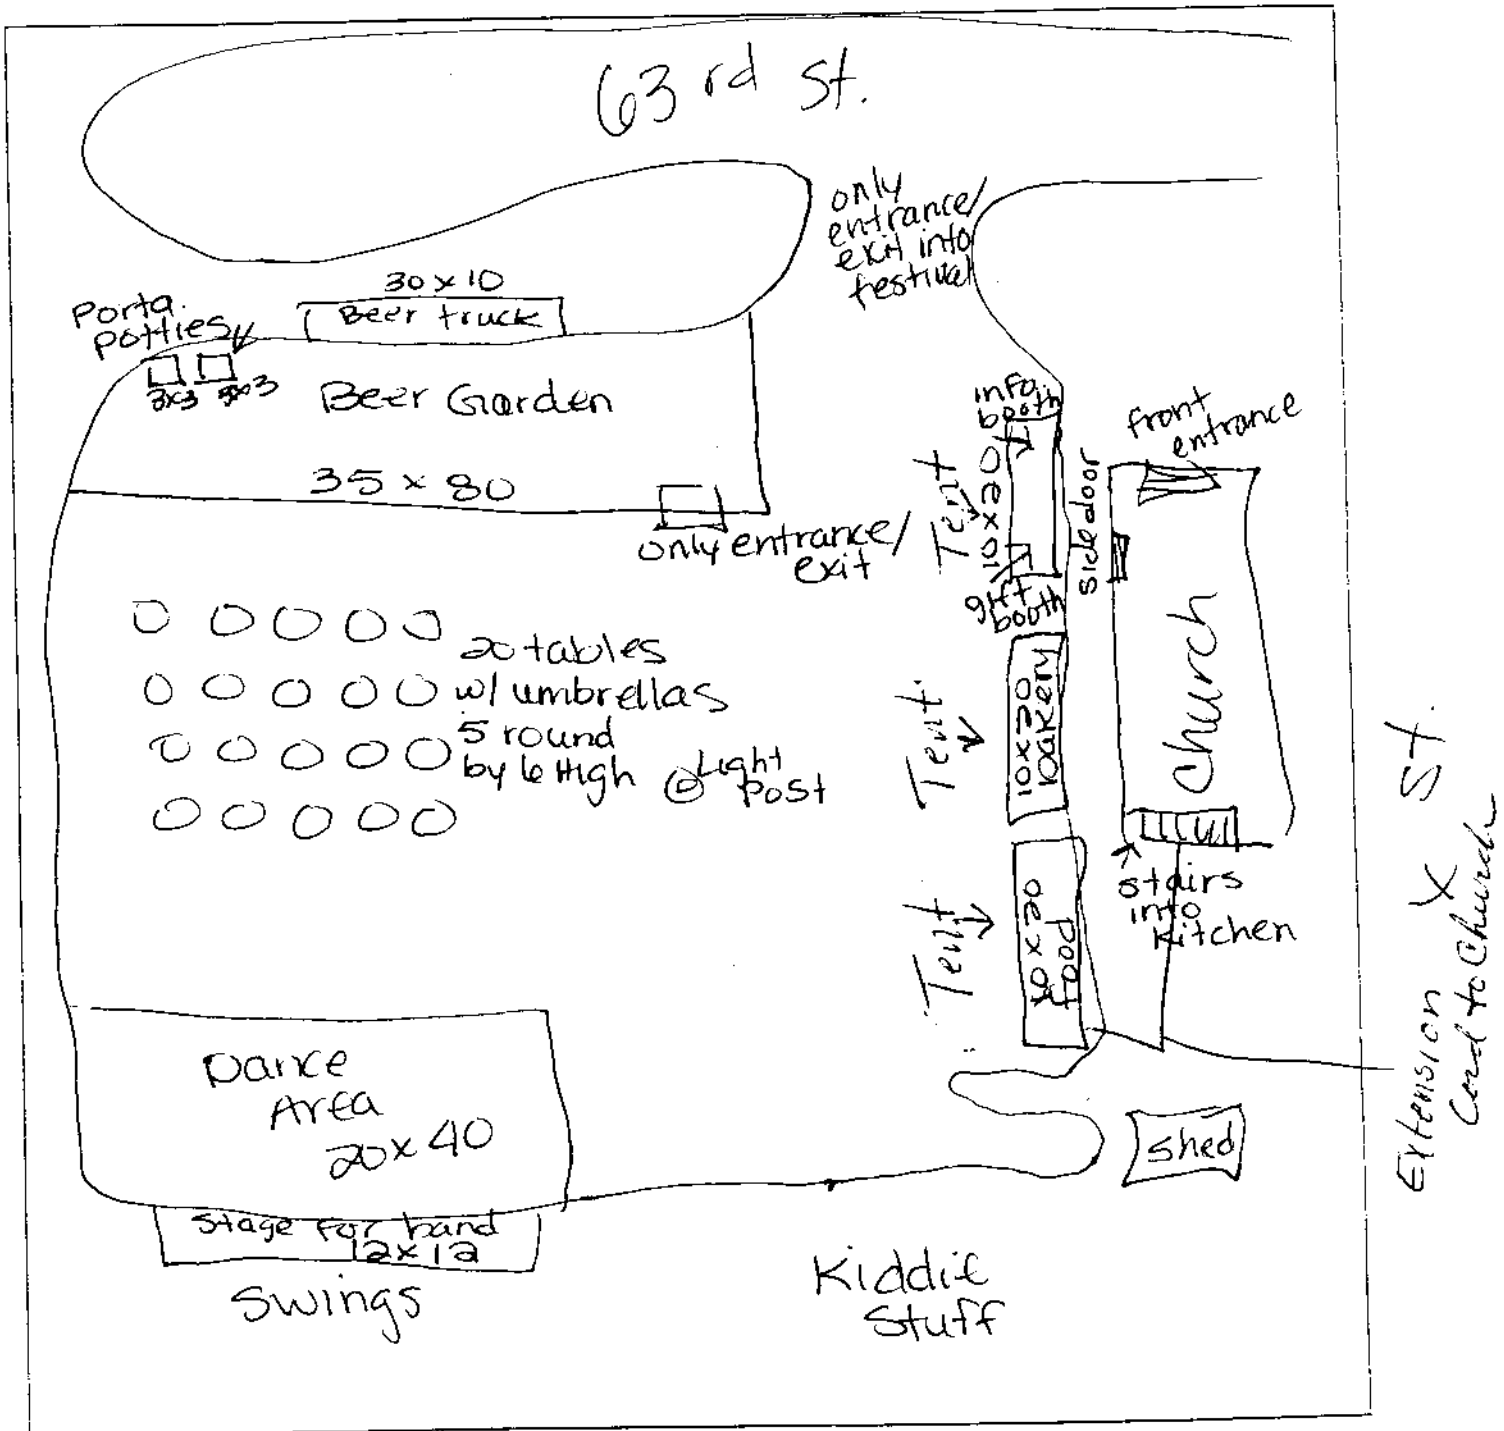 63rd St.
only
entrance/
exit into
festival
30 x 10
Beer truck
Porta
potties
3x3
3x3
Beer Garden
35 x 80
only entrance/
exit
info
booth
10x20
Tent
gift
booth
side door
front
entrance
Church
20 tables
w/ umbrellas
5 round
by 6 High
Light
Post
Tent
10x20
bakery
Tent
10x20
food
stairs
into
Kitchen
X St.
Extension
Cord to Church
Dance
Area
20x40
Stage for band
12x12
Swings
Shed
Kiddie
Stuff